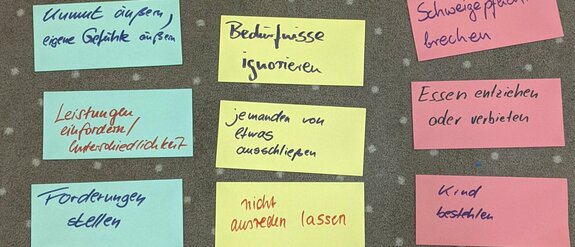 Unmut äußern,
eigene Gefühle äußern
Leistungen
einfordern/
Unterschiedlichkeit
Forderungen
stellen
Bedürfnisse
ignorieren
jemanden von
etwas
ausschließen
nicht
ausreden lassen
brechen
Essen entziehen
oder verbieten
Kind
bestehlen